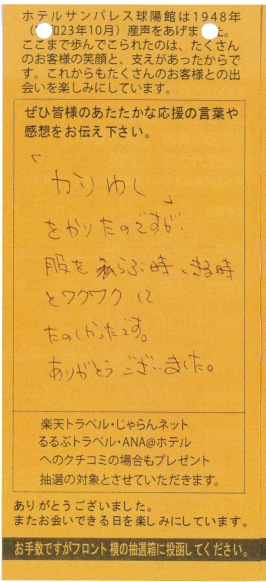 ホテルサンパレス球陽館は1948年
(和23年10月)産声をあげました。
ここまで歩んでこられたのは、たくさん
のお客様の笑顔と、支えがあったからで
す。これからもたくさんのお客様との出
会いを楽しみにしています。
ぜひ皆様のあたたかな応援の言葉や
感想をお伝え下さい。
「かりゆし」
をかりたのですが
服を えらぶ時、きる時
とワクワクして
たのしかったです。
ありがとうございました。
楽天トラベル・じゃらんネット
るるぶトラベル・ANA@ホテル
へのクチコミの場合もプレゼント
抽選の対象とさせていただきます。
ありがとうございました。
またお会いできる日を楽しみにしています。
お手数ですがフロント横の抽選箱に投函してください。